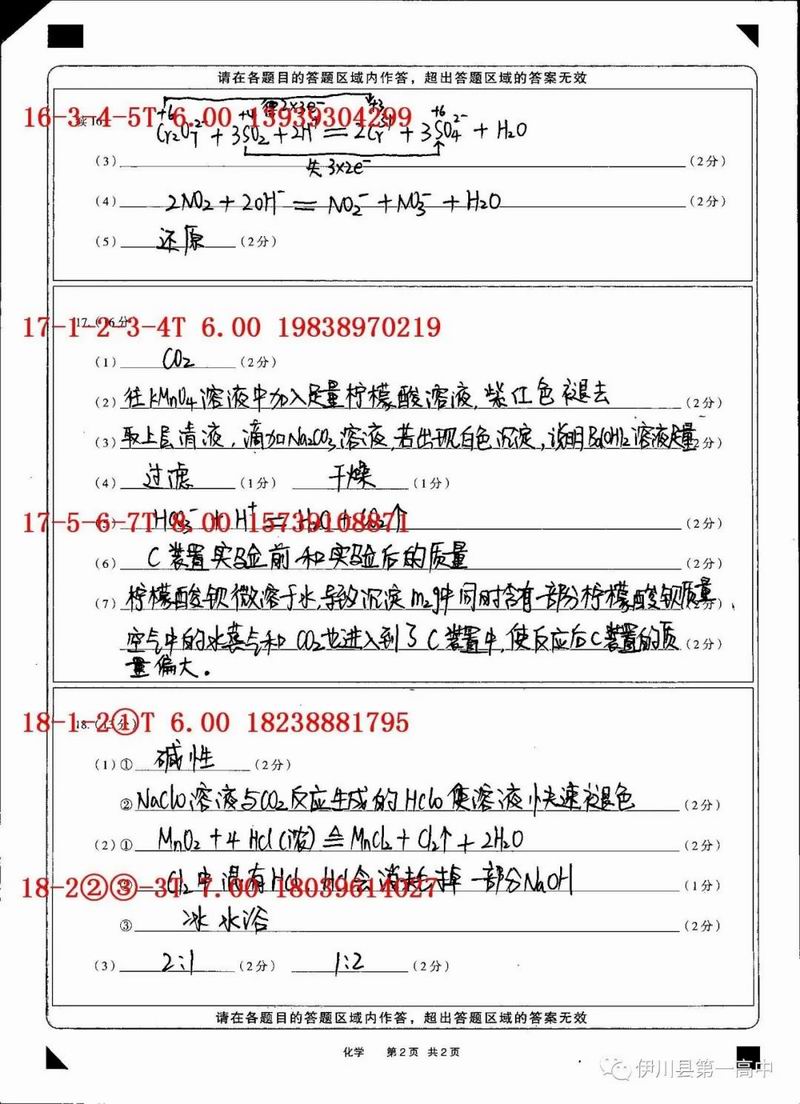 请在各题目的答题区域内作答，超出答题区域的答案无效
得3×3e⁻
16-3-4-5T 6.00 13939304299
+6 +4 +3 +6
Cr₂O₇²⁻ + 3SO₂ + 2H⁺ == 2Cr³⁺ + 3SO₄²⁻ + H₂O
(3) (2分)
失3×2e⁻
(4) 2NO₂ + 2OH⁻ == NO₂⁻ + NO₃⁻ + H₂O (2分)
(5) 还原 (2分)
17-1-2-3-4T 6.00 19838970219
(1) CO₂ (2分)
(2) 往KMnO₄溶液中加入足量柠檬酸溶液，紫红色褪去 (2分)
(3) 取上层清液，滴加Na₂CO₃溶液，若出现白色沉淀，说明Ba(OH)₂溶液足量 (2分)
(4) 过滤 (1分) 干燥 (1分)
17-5-6-7T 8.00 15739108871
HCO₃⁻ + H⁺ == H₂O + CO₂↑ (2分)
(6) C装置实验前和实验后的质量 (2分)
(7) 柠檬酸钡微溶于水，导致沉淀m₂g中同时含有一部分柠檬酸钡质量，
空气中的水蒸气和CO₂也进入到了C装置中，使反应后C装置的质 (2分)
量偏大。
18-1-2①T 6.00 18238881795
(1)① 碱性 (2分)
②NaClO溶液与CO₂反应生成的HClO使溶液快速褪色 (2分)
(2)① MnO₂ + 4HCl(浓) ≜ MnCl₂ + Cl₂↑ + 2H₂O (2分)
18-2②③-3T 7.00 18039614027
Cl₂中混有HCl，HCl会消耗掉一部分NaOH (1分)
③ 冰水浴 (2分)
(3) 2:1 (2分) 1:2 (2分)
请在各题目的答题区域内作答，超出答题区域的答案无效
化学 第2页 共2页
伊川县第一高中